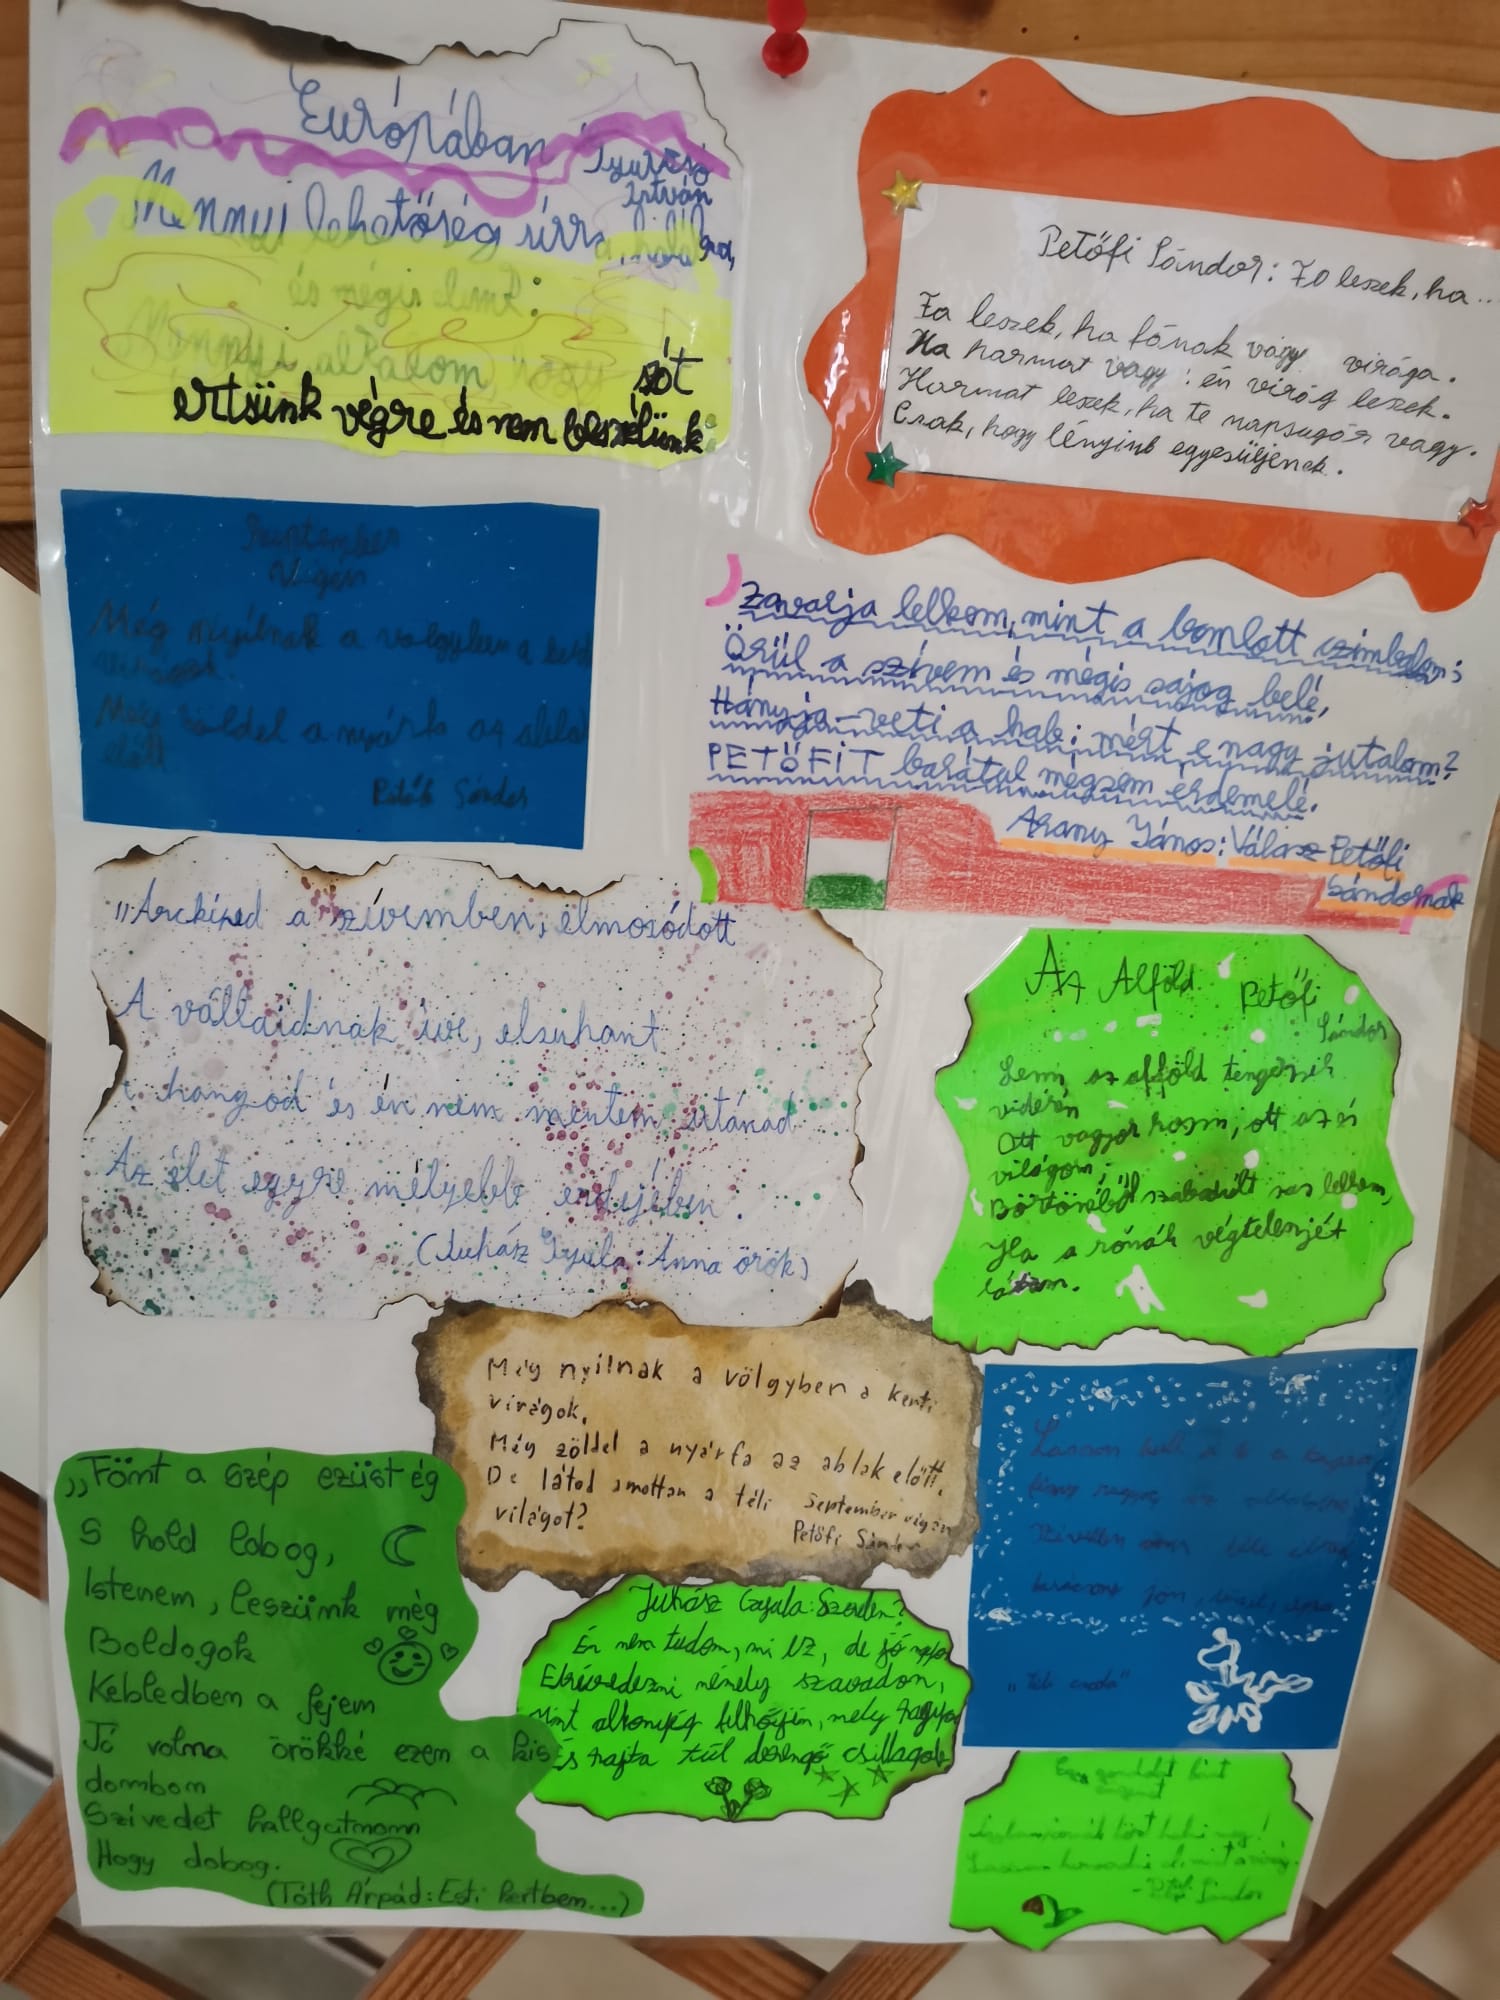 Európában
Gyurcsó
István
Mennyi lehetőség sírra, halálra,
és mégis élünk:
Mennyi alkalom, hogy sót
értsünk végre és nem beszélünk:
Petőfi Sándor: Fa leszek, ha...
Fa leszek, ha fának vagy virága.
Ha harmat vagy: én virág leszek.
Harmat leszek, ha te napsugár vagy.
Csak, hogy lényink egyesüljenek.
Szeptember
Végén
Még nyílnak a völgyben a kerti
virágok.
Még zöldel a nyárfa az ablak
előtt
Petőfi Sándor
Zavarja lelkem, mint a bomlott cimbalom;
Örül a szívem és mégis sajog belé,
Hányja-veti a hab: mért e nagy jutalom?
PETŐFIT barátul mégsem érdemelé.
Arany János: Válasz Petőfi
Sándornak
"Arcképed a szívemben, elmosódott
A vállaidnak íve, elsuhant
A hangod és én nem mentem utánad
Az élet egyre mélyebb erdejében.
(Juhász Gyula: Anna örök)
Az Alföld Petőfi
Sándor
Lenn az alföld tengersík
vidékin
Ott vagyok honn, ott az én
világom;
Börtönéből szabadúlt sas lelkem,
Ha a rónák végtelenjét
látom.
Még nyílnak a völgyben a kerti
virágok,
Még zöldel a nyárfa az ablak előtt.
De látod amottan a téli
világot?
Szeptember végén
Petőfi Sándor
"Fönt a szép ezüst ég
S hold lobog,
Istenem, leszünk még
Boldogok
Kebledben a fejem
Jó volna örökké ezem a kis
dombom
Szivedet hallgatnom
Hogy dobog.
(Tóth Árpád: Esti kertben...)
Juhász Gyula: Szerelem?
Én nem tudom, mi ez, de jó nagyon
Elrévedezni némely szavadon,
Mint alkonyég felhőjén, mely ragyog
És rajta túl derengő csillagok.
"Téli csoda"
Egy gondolat bánt
engemet
Lassan hervadni el, mint a virág
- Petőfi Sándor